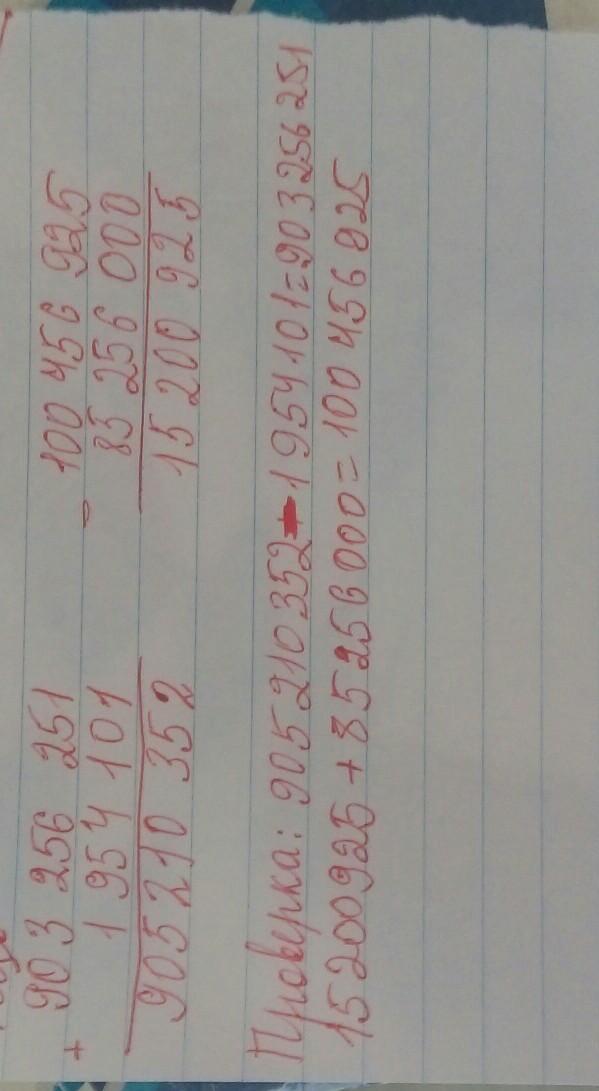 + 903 256 251 - 100 456 925
1 954 101 85 256 000
905 210 352 15 200 925
Проверка: 905 210 352-1 954 101=903 256 251
15 200 925+85 256 000=100 456 925